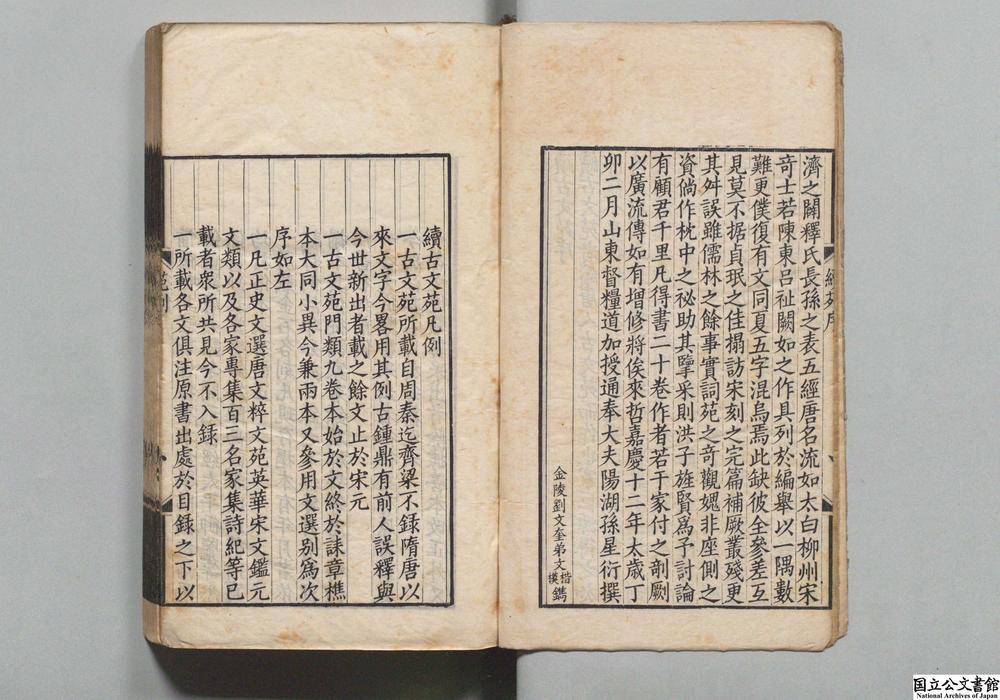 濟之闢釋氏長孫之表五經唐名流如太白柳州宋
奇士若陳東呂祉闕如之作具列於編舉以一隅數
難更僕復有文同夏五字混烏焉此缺彼全參差互
見莫不据貞珉之佳搨訪宋刻之完篇補厥叢殘更
其舛誤雖儒林之餘事實詞苑之奇觀媿非座側之
資倘作枕中之祕助其擥采則洪子旌賢爲予討論
有顧君千里凡得書二十卷作者若干家付之剞劂
以廣流傳如有增修將俟來哲嘉慶十二年太歲丁
卯二月山東督糧道加授通奉大夫陽湖孫星衍撰
金陵劉文奎弟文楷模鐫
續古文苑凡例
一古文苑所載自周秦迄齊梁不録隋唐以
來文字今畧用其例古鍾鼎有前人誤釋與
今世新出者載之餘文止於宋元
一古文苑門類九卷本始於文終於誄章樵
本大同小異今兼兩本又參用文選别爲次
序如左
一凡正史文選唐文粹文苑英華宋文鑑元
文類以及各家專集百三名家集詩紀等已
載者衆所共見今不入録
一所載各文俱注原書出處於目録之下以
国立公文書館
National Archives of Japan